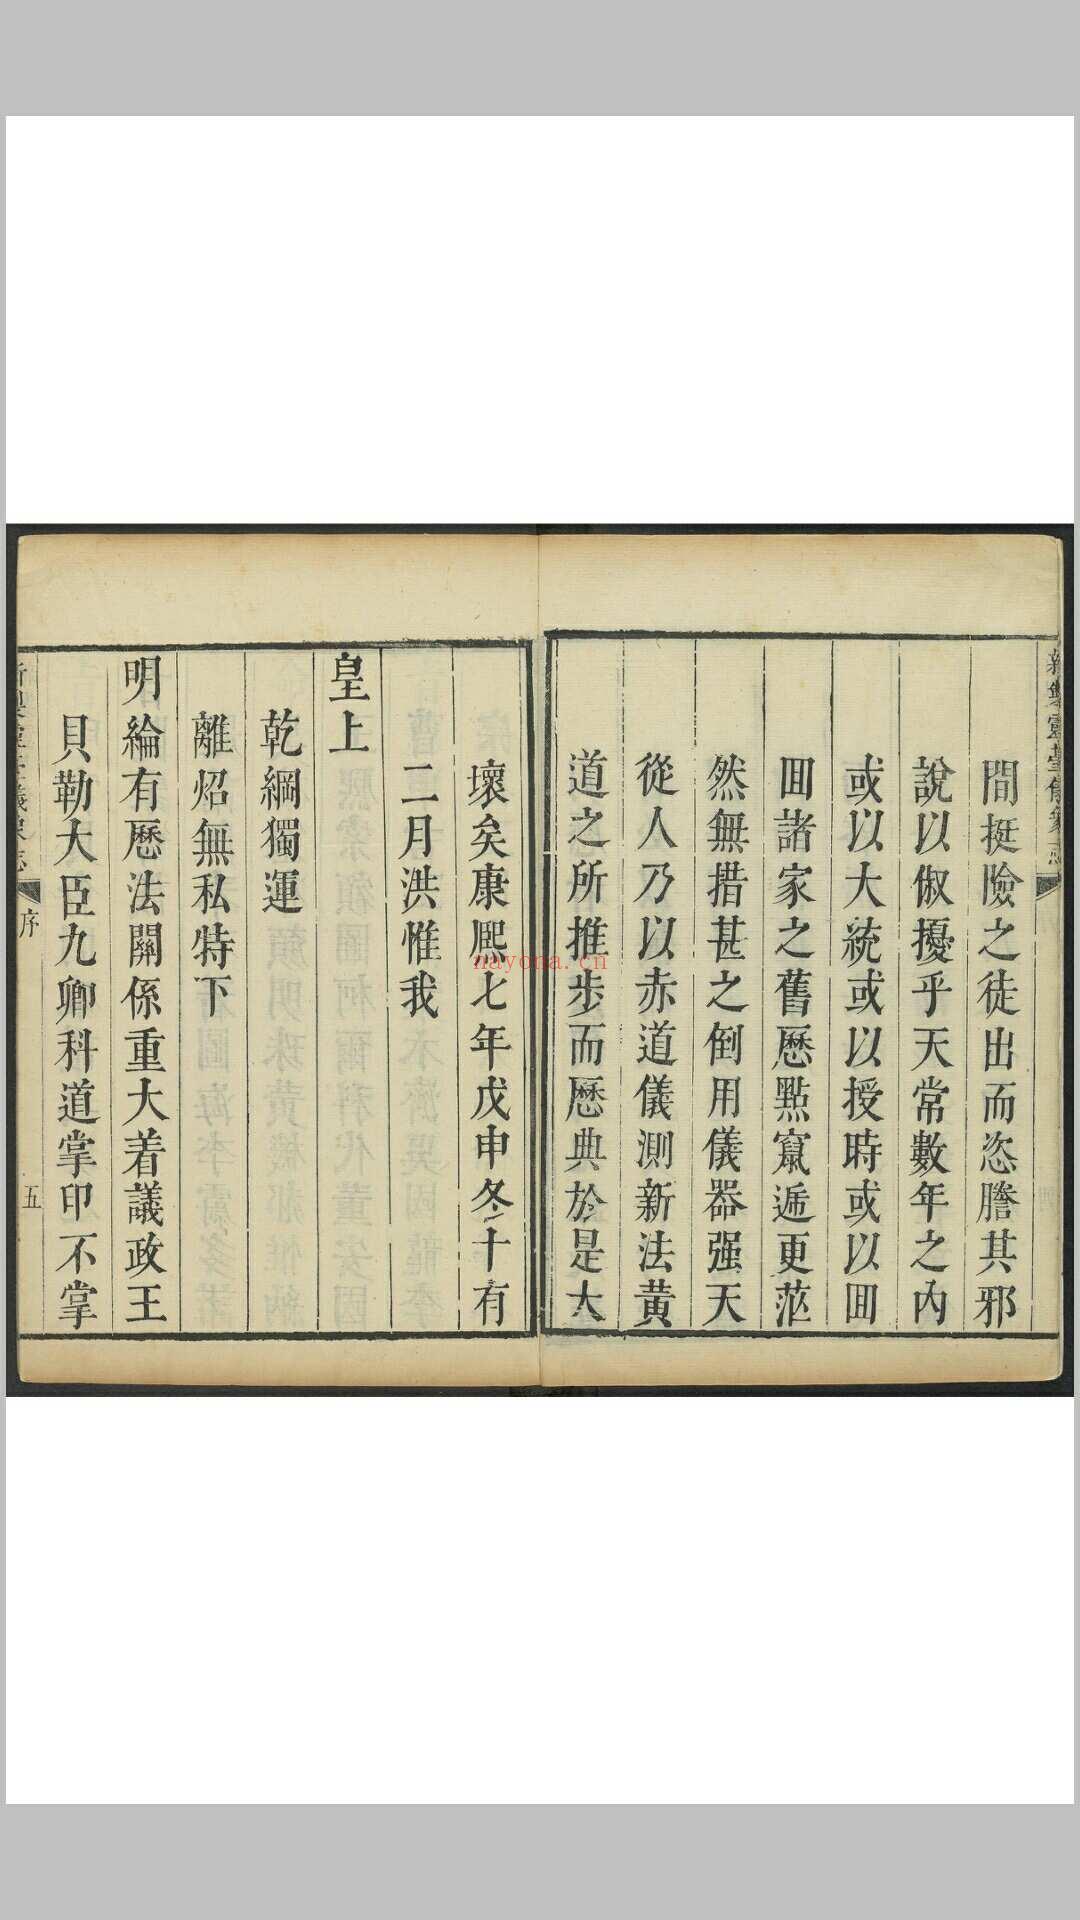 間挺險之徒出而恣謄其邪
說以俶擾乎天常數年之內
或以大統或以授時或以囬
囬諸家之舊厯點竄遞更茫
然無措甚之倒用儀器强天
從人乃以赤道儀測新法黃
道之所推步而厯典於是大
壞矣康熙七年戊申冬十有
二月洪惟我
皇上
乾綱獨運
離炤無私特下
明綸有厯法關係重大着議政王
貝勒大臣九卿科道掌印不掌
新製靈臺儀象志
序
五
nayona.cn